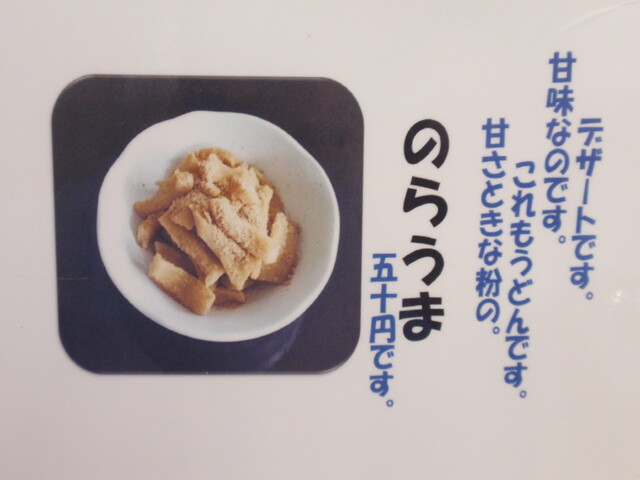 デザートです。
甘味なのです。
これもうどんです。
甘さときな粉の。
のらうま
五十円です。